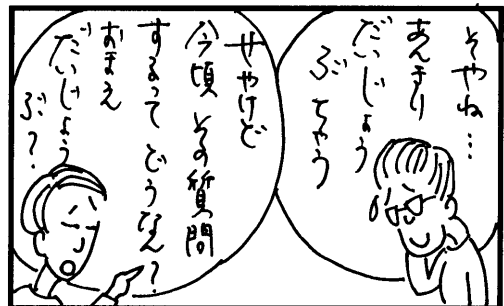 そやね…
あんまり
だいじょう
ぶちゃう
せやけど
今頃その質問
するってどうなん?
おまえ
だいじょう
ぶ?